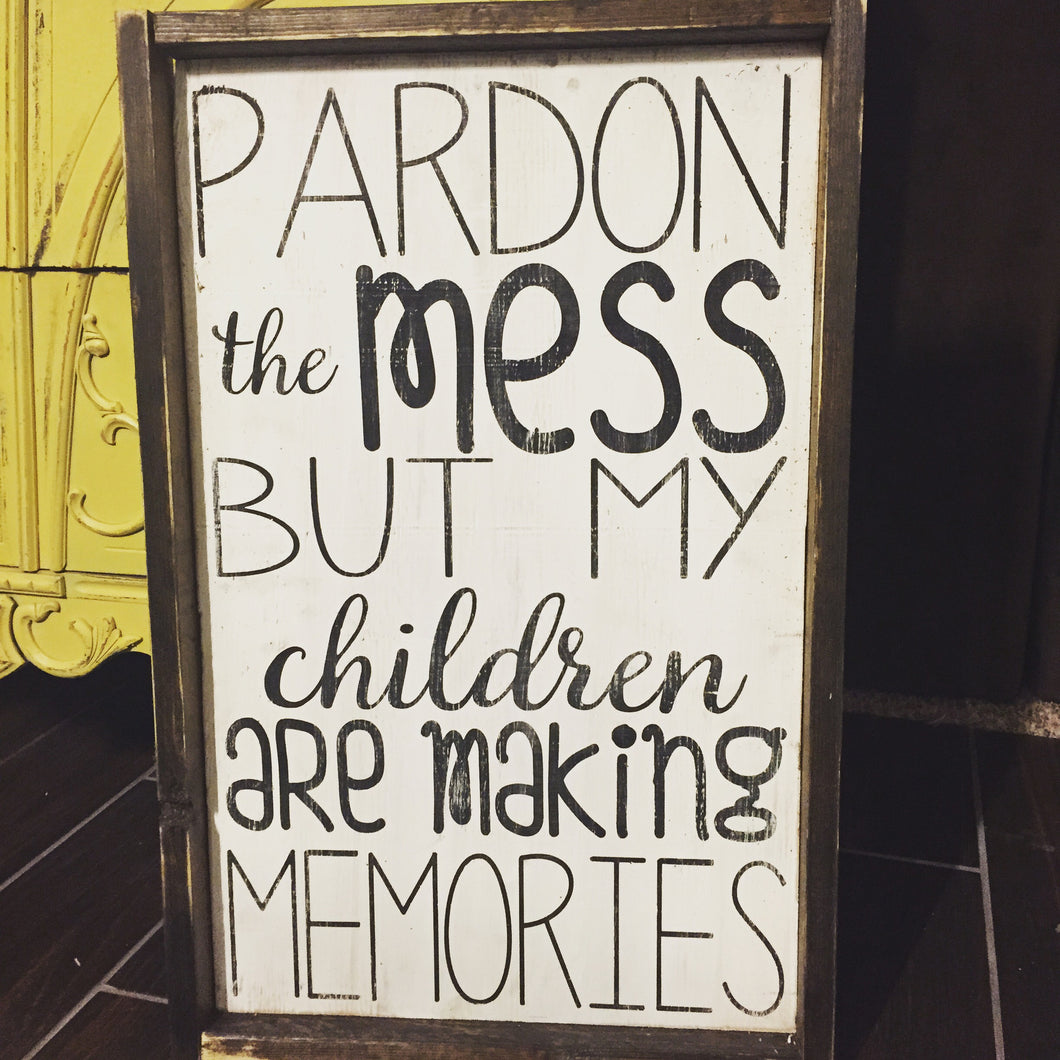 PARDON
the mess
BUT MY
children
are making
MEMORIES